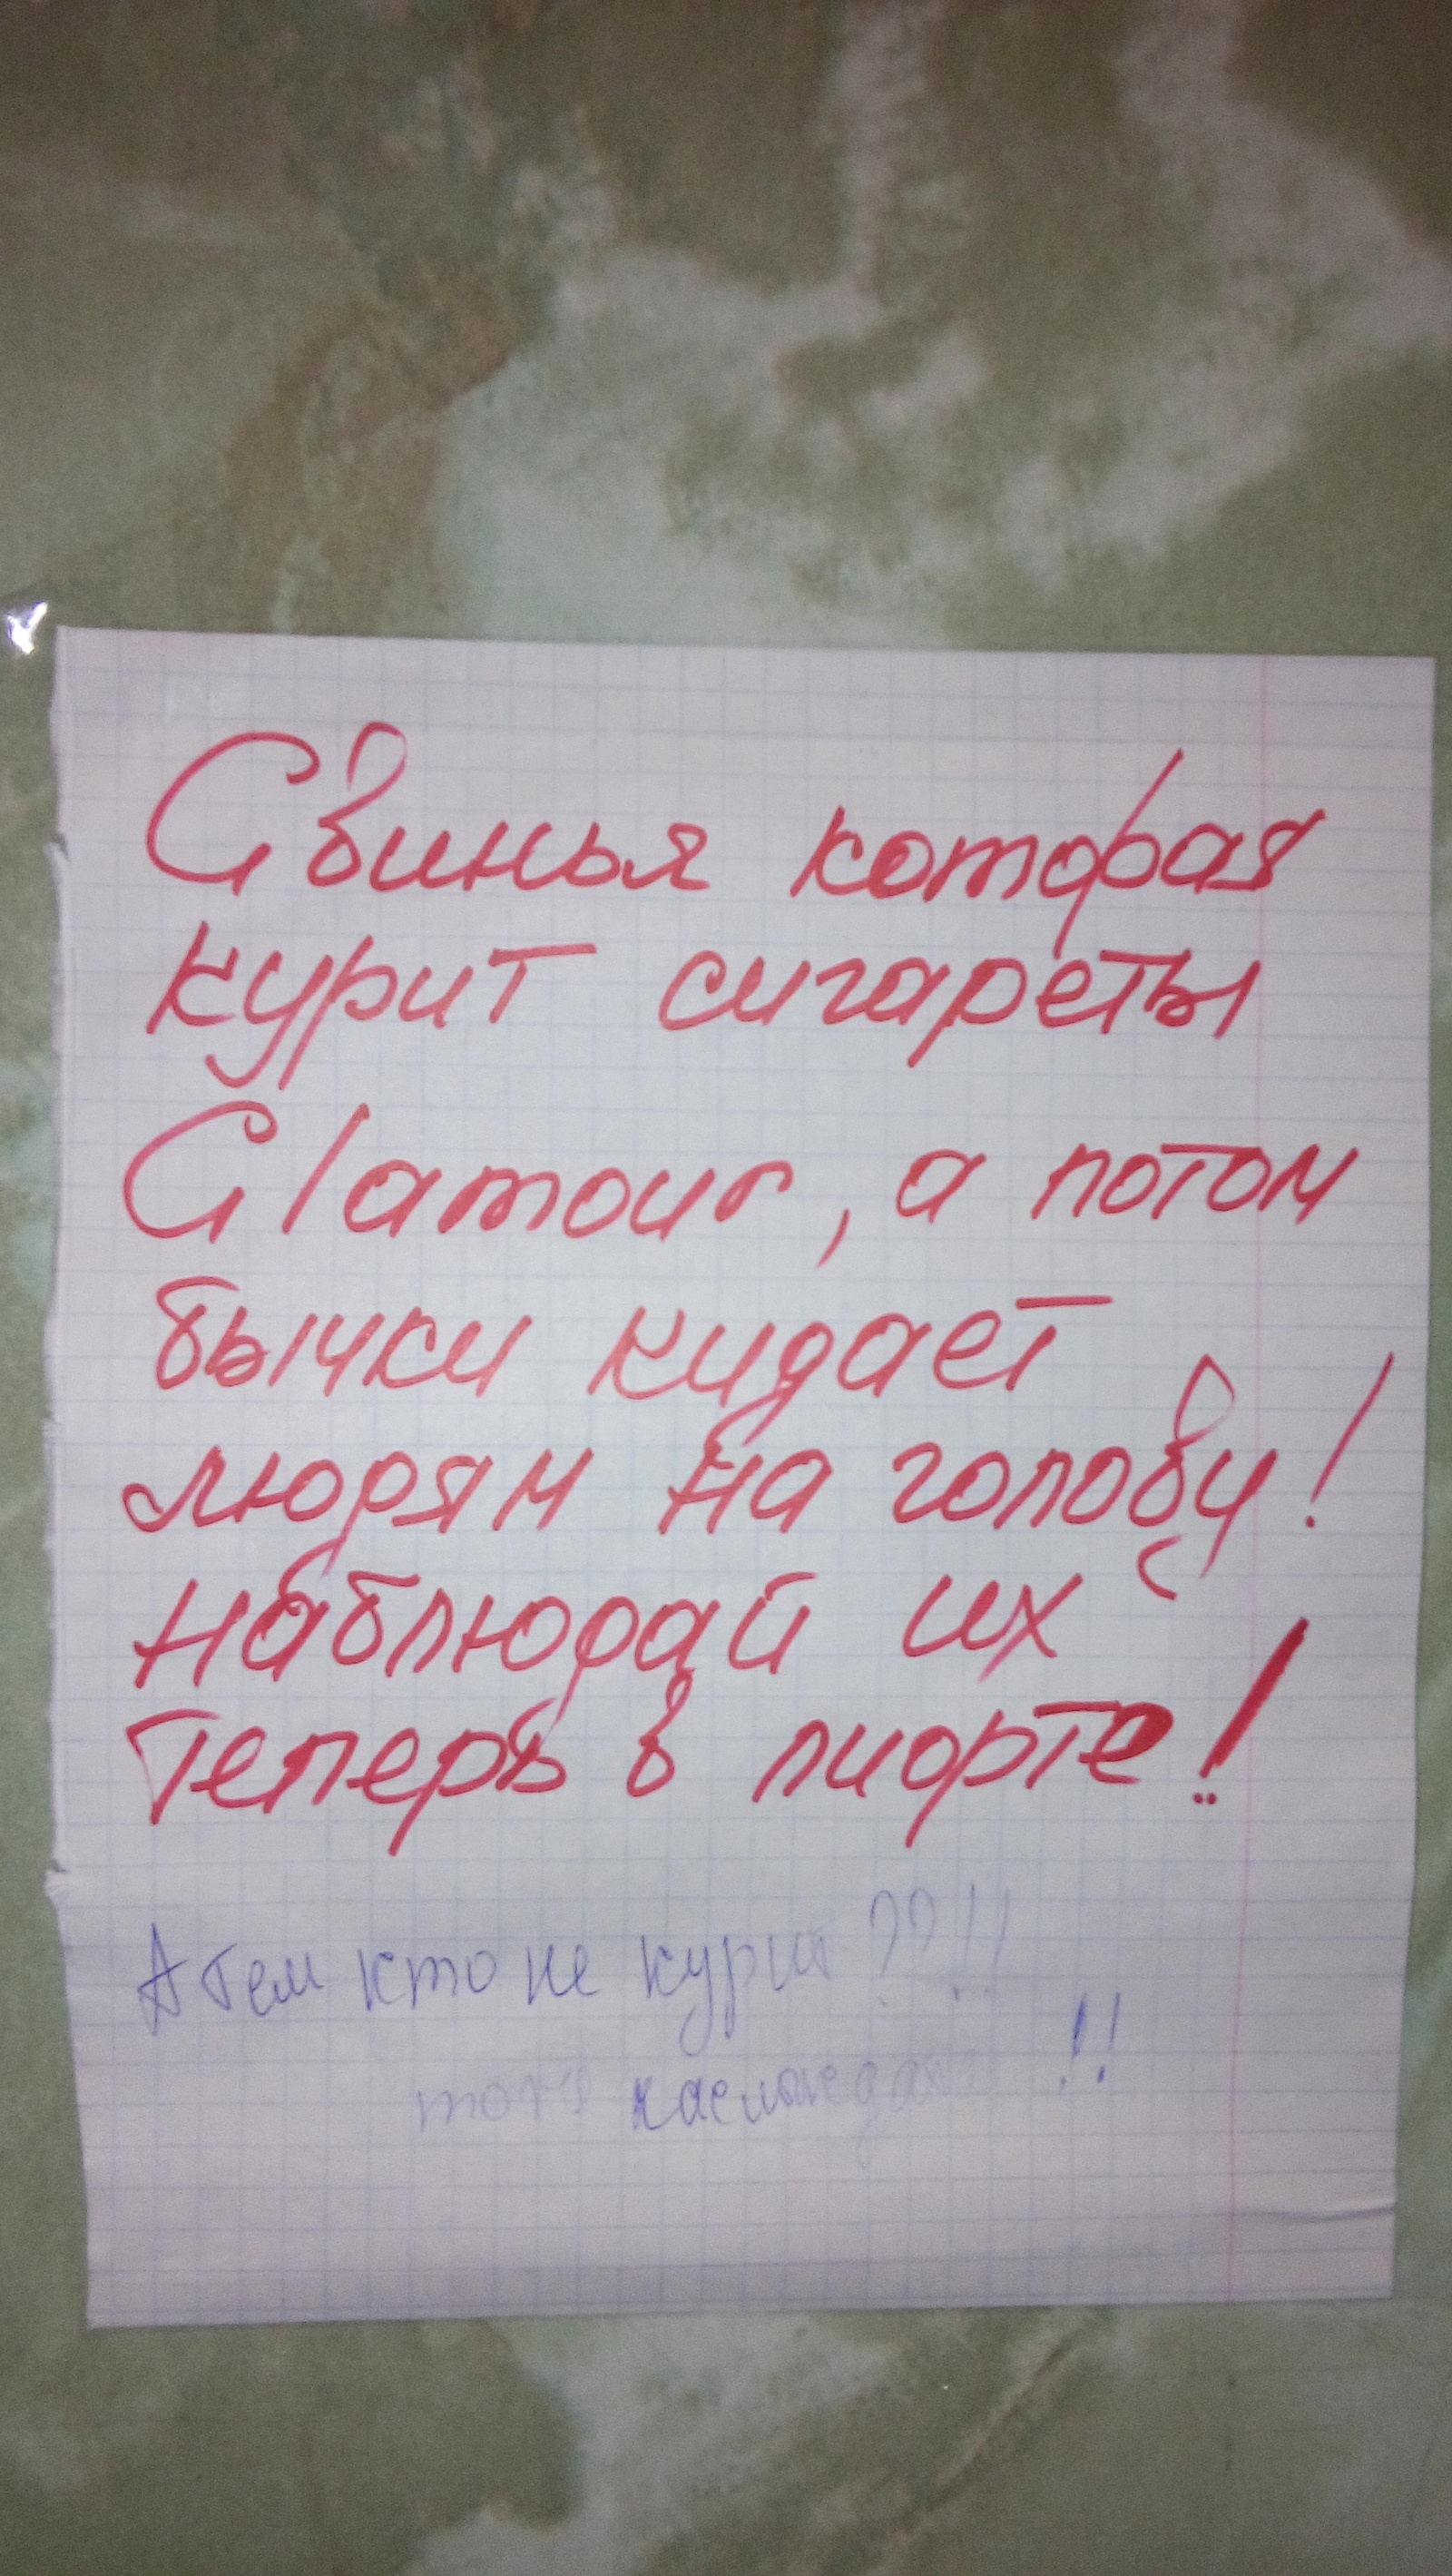 Свинья которая
курит сигареты
Glamour, а потом
бычки кидает
людям на голову!
наблюдай их
теперь в лифте!
А тем кто не курит??!!
тоже наслаждать!!